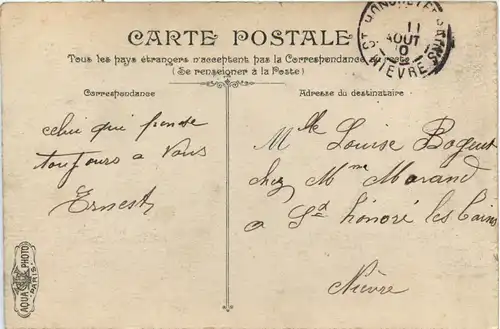 CARTE POSTALE
Tous les pays étrangers n'acceptent pas la Correspondance au recto
(Se renseigner à la Poste)
ST HONORE LES BAINS
11
AOUT
10
NIEVRE
Correspondance
Adresse du destinataire
celui qui pense
toujours a vous
Ernest
Mlle Louise Bogent
chez Mme Morand
a St honoré les bains
Nièvre
AQUA PHOTO
PARIS